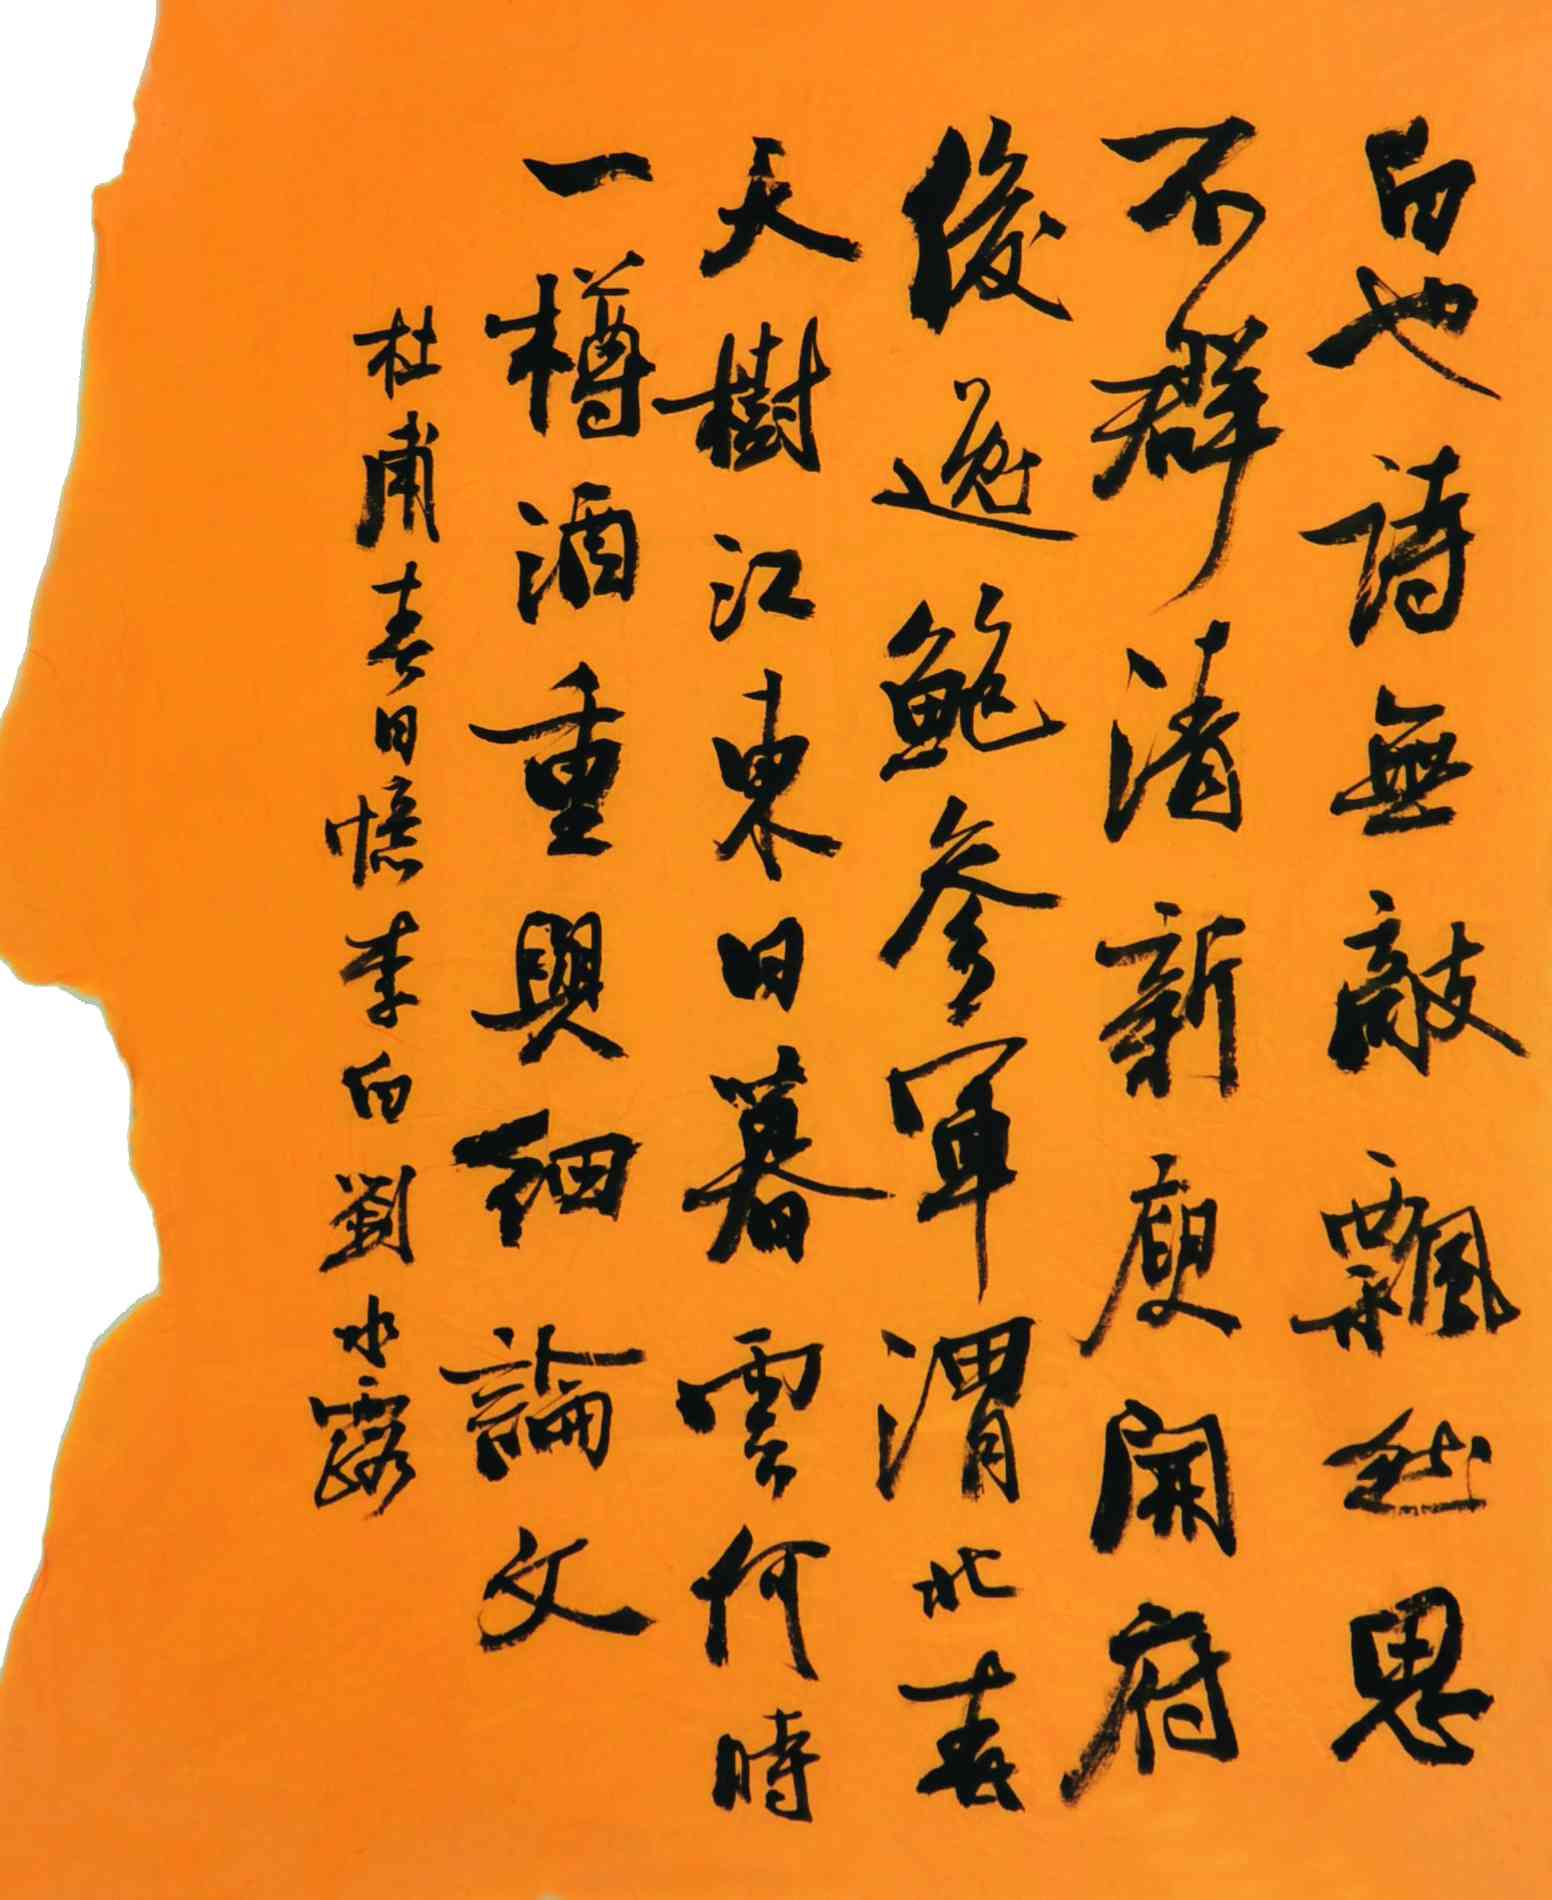 白也詩無敵飄然思
不群清新庾開府
俊逸鮑參軍渭北春
天樹江東日暮雲何時
一樽酒重與細論文
杜甫春日憶李白劉水露